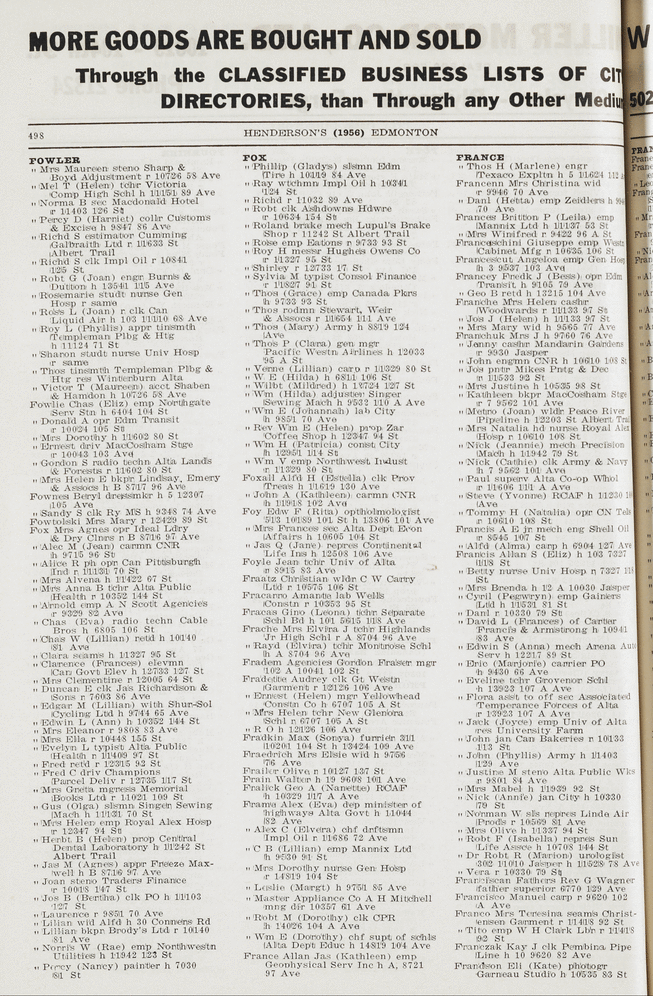 MORE GOODS ARE BOUGHT AND SOLD
Through the CLASSIFIED BUSINESS LISTS OF CIT
DIRECTORIES, than Through any Other Mediu
W
502
498
HENDERSON'S (1956) EDMONTON
FOWLER
" Mrs Maureen steno Sharp &
Boyd Adjustment r 10726 58 Ave
" Mel T (Helen) tchr Victoria
Comp High Schl h 11151 89 Ave
" Norma B sec Macdonald Hotel
r 11403 126 St
" Percy D (Harriet) collr Customs
& Excise h 9847 86 Ave
" Richd S estimator Cumming
Galbraith Ltd r 11633 St
Albert Trail
" Richd S clk Impl Oil r 10841
125 St
" Robt G (Joan) engr Burns &
Dutton h 13541 115 Ave
" Rosemarie studt nurse Gen
Hosp r same
" Ross L (Joan) r clk Can
Liquid Air h 103 11110 68 Ave
" Roy L (Phyllis) appr tinsmth
Templeman Plbg & Htg
h 11124 71 St
" Sharon studt nurse Univ Hosp
r same
" Thos tinsmith Templeman Plbg &
Htg res Winterburn Alta
" Victor T (Maureen) acct Shaben
& Hamdon h 10726 58 Ave
Fowlie Chas (Eliz) emp Northgate
Serv Stn h 6404 104 St
" Donald A opr Edm Transit
r 10024 105 St
" Mrs Dorothy h 11602 80 St
" Ernest driv MacCosham Stge
r 10043 103 Ave
" Gordon S radio techn Alta Lands
& Forests r 11602 80 St
" Mrs Helen E bkpr Lindsay, Emery
& Assocs h B 8717 96 Ave
Fownes Beryl dressmkr h 5 12307
105 Ave
" Sandy S clk Ry MS h 9348 74 Ave
Fowtolski Mrs Mary r 12429 89 St
Fox Mrs Agnes opr Ideal Ldry
& Dry Clnrs r B 8716 97 Ave
" Alec M (Jean) carmn CNR
h 9715 96 St
" Alice R ph opr Can Pittsburgh
Ind r 11131 70 St
" Mrs Alvena h 11422 67 St
" Mrs Anna B tchr Alta Public
Health r 10352 144 St
" Arnold emp A N Scott Agencies
r 9329 82 Ave
" Chas (Eva) radio techn Cable
Bros h 6805 106 St
" Chas W (Lillian) retd h 10140
81 Ave
" Clara seams h 11327 95 St
" Clarence (Frances) elevmn
Can Govt Elev h 12733 127 St
" Mrs Clementine r 12005 64 St
" Duncan E clk Jas Richardson &
Sons r 7603 86 Ave
" Edgar M (Lillian) with Shur-Sol
Cycling Ltd r 9744 65 Ave
" Edwin L (Ann) h 10352 144 St
" Mrs Eleanor r 9808 83 Ave
" Mrs Ella r 10448 155 St
" Evelyn L typist Alta Public
Health r 11409 97 St
" Fred retd r 12315 92 St
" Fred C driv Champions
Parcel Deliv r 12735 117 St
" Mrs Greita mgress Memorial
Books Ltd r 11021 109 St
" Gus (Olga) slsmn Singer Sewing
Mach h 11131 70 St
" Mrs Helen emp Royal Alex Hosp
r 12347 94 St
" Herbt B (Helen) prop Central
Dental Laboratory h 11242 St
Albert Trail
" Jas M (Agnes) appr Freeze Max-
well h B 8716 97 Ave
" Joan steno Traders Finance
r 10018 147 St
" Jos B (Bertha) clk PO h 11103
127 St
" Laurence r 9851 70 Ave
" Lilian wid Alfd h 30 Conners Rd
" Lillian bkpr Brody's Ltd r 10140
81 Ave
" Norris W (Rae) emp Northwestn
Utilities h 11942 123 St
" Percy (Nancy) painter h 7030
81 St
FOX
" Phillip (Gladys) slsmn Edm
Tire h 10119 84 Ave
" Ray wtchmn Impl Oil h 10341
124 St
" Richd r 11032 89 Ave
" Robt clk Ashdowns Hdwre
r 10634 154 St
" Roland brake mech Lupul's Brake
Shop r 11242 St Albert Trail
" Rose emp Eatons r 9733 93 St
" Roy H messr Hughes Owens Co
r 11327 95 St
" Shirley r 12733 17 St
" Sylvia M typist Consol Finance
r 11827 91 St
" Thos (Grace) emp Canada Pkrs
h 9733 93 St
" Thos rodmn Stewart, Weir
& Assocs r 11654 111 Ave
" Thos (Mary) Army h 8819 124
Ave
" Thos P (Clara) gen mgr
Pacific Westn Airlines h 12033
95 A St
" Verne (Lillian) carp r 11329 80 St
" W E (Hilda) h 6811 106 St
" Wilbt (Mildred) h 11724 127 St
" Wm (Hilda) adjuster Singer
Sewing Mach h 9532 110 A Ave
" Wm E (Johannah) lab City
h 9851 70 Ave
" Rev Wm E (Helen) prop Zar
Coffee Shop r 12347 94 St
" Wm H (Patricia) const City
h 12951 114 St
" Wm V emp Northwest Indust
r 11329 80 St
Foxall Alfd H (Estella) clk Prov
Treas h 11619 130 Ave
" John A (Kathleen) carmn CNR
h 11918 102 Ave
Foy Edw F (Rita) optholmologist
513 10189 101 St h 13806 101 Ave
" Mrs Frances sec Alta Dept Econ
Affairs h 10605 104 St
" Jas Q (Jane) repres Continental
Life Ins h 12508 106 Ave
Foyle Jean tchr Univ of Alta
r 8915 83 Ave
Fraatz Christian wldr C W Carry
Ltd r 10575 106 St
Fracarro Amanto lab Wells
Constn r 10353 95 St
Fracas Gino (Leona) tchr Separate
Schl Bd h 101 5615 118 Ave
Frache Mrs Elvira J tchr Highlands
Jr High Schl r A 8704 96 Ave
" Rayd (Elvira) tchr Montrose Schl
h A 8704 96 Ave
Fradem Agencies Gordon Fraser mgr
102 A 10041 102 St
Fradette Audrey clk Gt Westn
Garment r 12126 106 Ave
" Ernest (Helen) mgr Yellowhead
Constn Co h 6707 105 A St
" Mrs Helen tchr New Glenora
Schl r 6707 105 A St
" R O h 12126 106 Ave
Fradkin Max (Sonya) furrier 311
10201 104 St h 13424 109 Ave
Fraedrich Mrs Elsie wid h 9756
76 Ave
Frailer Olive r 10127 137 St
Frain Walter h 19 9608 101 Ave
Fralick Geo A (Nanette) RCAF
h 10329 117 A Ave
Frame Alex (Eva) dep minister of
highways Alta Govt h 11044
82 Ave
" Alex C (Elvera) chf dftsmn
Impl Oil r 11686 72 Ave
" C B (Lillian) emp Mannix Ltd
h 9530 91 St
" Mrs Dorothy nurse Gen Hosp
r 14819 104 St
" Leslie (Margt) h 9751 85 Ave
" Master Appliance Co A H Mitchell
mng dir 10357 61 Ave
" Robt M (Dorothy) clk CPR
h 14026 104 A Ave
" Wm E (Dorothy) chf supt of schls
Alta Dept Educ h 14819 104 Ave
France Allan Jas (Kathleen) emp
Geophysical Serv Inc h A, 8721
97 Ave
FRANCE
" Thos H (Marlene) engr
Texaco Expltn h 5 11624 112
Francenn Mrs Christina wid
r 9946 70 Ave
" Danl (Hetta) emp Zeidlers h
70 Ave
Frances Britton P (Leila) emp
Mannix Ltd h 11137 53 St
" Mrs Winifred r 9422 96 A St
Franceschini Giuseppe emp Westn
Cabinet Mfg r 10635 106 St
Francescut Angeloa emp Gen Hosp
h 3 9537 103 Ave
Francey Fredk J (Bess) opr Edm
Transit h 9105 79 Ave
" Geo B retd h 13215 104 Ave
Franche Mrs Helen cashr
Woodwards r 11133 97 St
" Jos J (Helen) h 11133 97 St
" Mrs Mary wid h 9565 77 Ave
Franchuk Mrs J h 9760 76 Ave
" Jenny cashr Mandarin Gardens
r 9930 Jasper
" John engmn CNR h 10610 108 St
" Jos pntr Mikes Pntg & Dec
r 11533 92 St
" Mrs Justine h 10535 98 St
" Kathleen bkpr MacCosham Stge
r 7 9562 101 Ave
" Metro (Joan) wldr Peace River
Pipeline h 12203 St Albert Trail
" Mrs Natalia hd nurse Royal Alex
Hosp r 10610 108 St
" Nick (Jeannie) mech Precision
Mach h 11942 79 St
" Nick (Cathie) clk Army & Navy
h 7 9562 101 Ave
" Paul superv Alta Co-op Whol
r 11606 111 A Ave
" Steve (Yvonne) RCAF h 11230
Ave
" Tommy H (Natalia) opr CN Tels
r 10610 108 St
Francis A E jr mech eng Shell Oil
r 8545 107 St
Francis Allan S (Eliz) h 103 7327
118 St
" Betty nurse Univ Hosp r 7327
St
" Mrs Brenda h 12 A 10030 Jasper
" Cyril (Pegwryn) emp Gainers
Ltd h 11531 81 St
" Danl r 10330 79 St
" David L (Frances) of Cartier
Francis & Armstrong h 10941
83 Ave
" Edwin S (Anna) mech Arena Auto
Serv h 12217 89 St
" Eric (Marjorie) carrier PO
h 9430 66 Ave
" Eveline tchr Grovenor Schl
h 13923 107 A Ave
" Flora asst to off sec Associated
Temperance Forces of Alta
r 13923 107 A Ave
" Jack (Joyce) emp Univ of Alta
res University Farm
" John jan Can Bakeries r 10133
113 St
" John (Phyllis) Army h 11403
129 Ave
" Justine M steno Alta Public Wks
r 9801 84 Ave
" Mrs Mabel h 11939 92 St
" Nick (Annie) jan City h 10330
79 St
" Norman W sls repres Linde Air
Prods r 10569 81 Ave
" Mrs Olive h 11337 94 St
" Robt F (Isabella) repres Sun
Life Assce h 10708 144 St
" Dr Robt R (Marion) urologist
302 11010 Jasper h 11528 78 Ave
" Vera r 10330 79 St
Franciscan Fathers Rev G Wagner
father superior 6770 129 Ave
Francisco Manuel carp r 9620 102
A Ave
Franco Mrs Teresina seams Christ-
ensen Garment r 11418 92 St
" Tito emp W H Clark Lbr r 11418
92 St
Franczak Kay J clk Pembina Pipe
Line h 10 9620 82 Ave
Frandson Eli (Kate) photogr
Garneau Studio h 10535 83 St